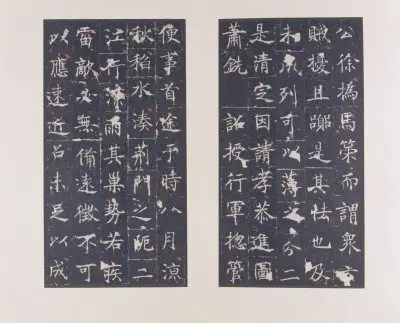 公徐撝馬策而謂衆
賊擾且是其怯也及
未成列可以薄之分二
是清定因請孝恭進圖
蕭銑 詔授行軍揔管
便事首途于時八月涼
秋稻水湊荊門之阨二
江行雨其巢勢若疾
雷敵必無備遠徵不可
以應速近召未足以成